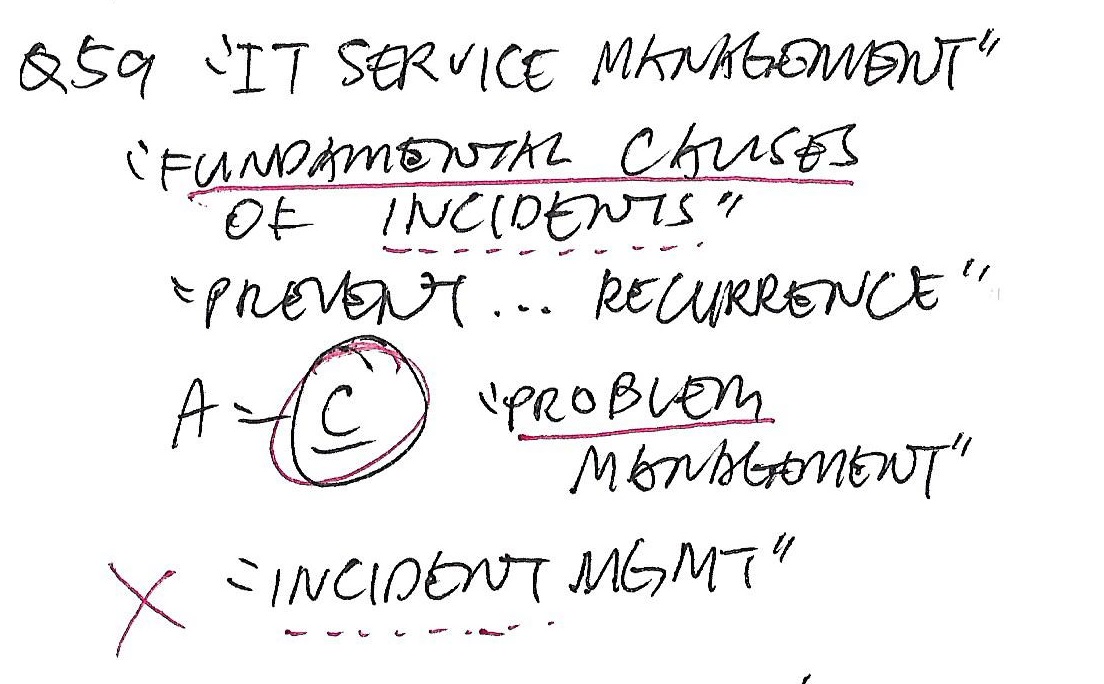 Q59 "IT SERVICE MANAGEMENT"
"FUNDAMENTAL CAUSES
OF INCIDENTS"
"PREVENT... RECURRENCE"
A = C "PROBLEM
MANAGEMENT"
X "INCIDENT MGMT"